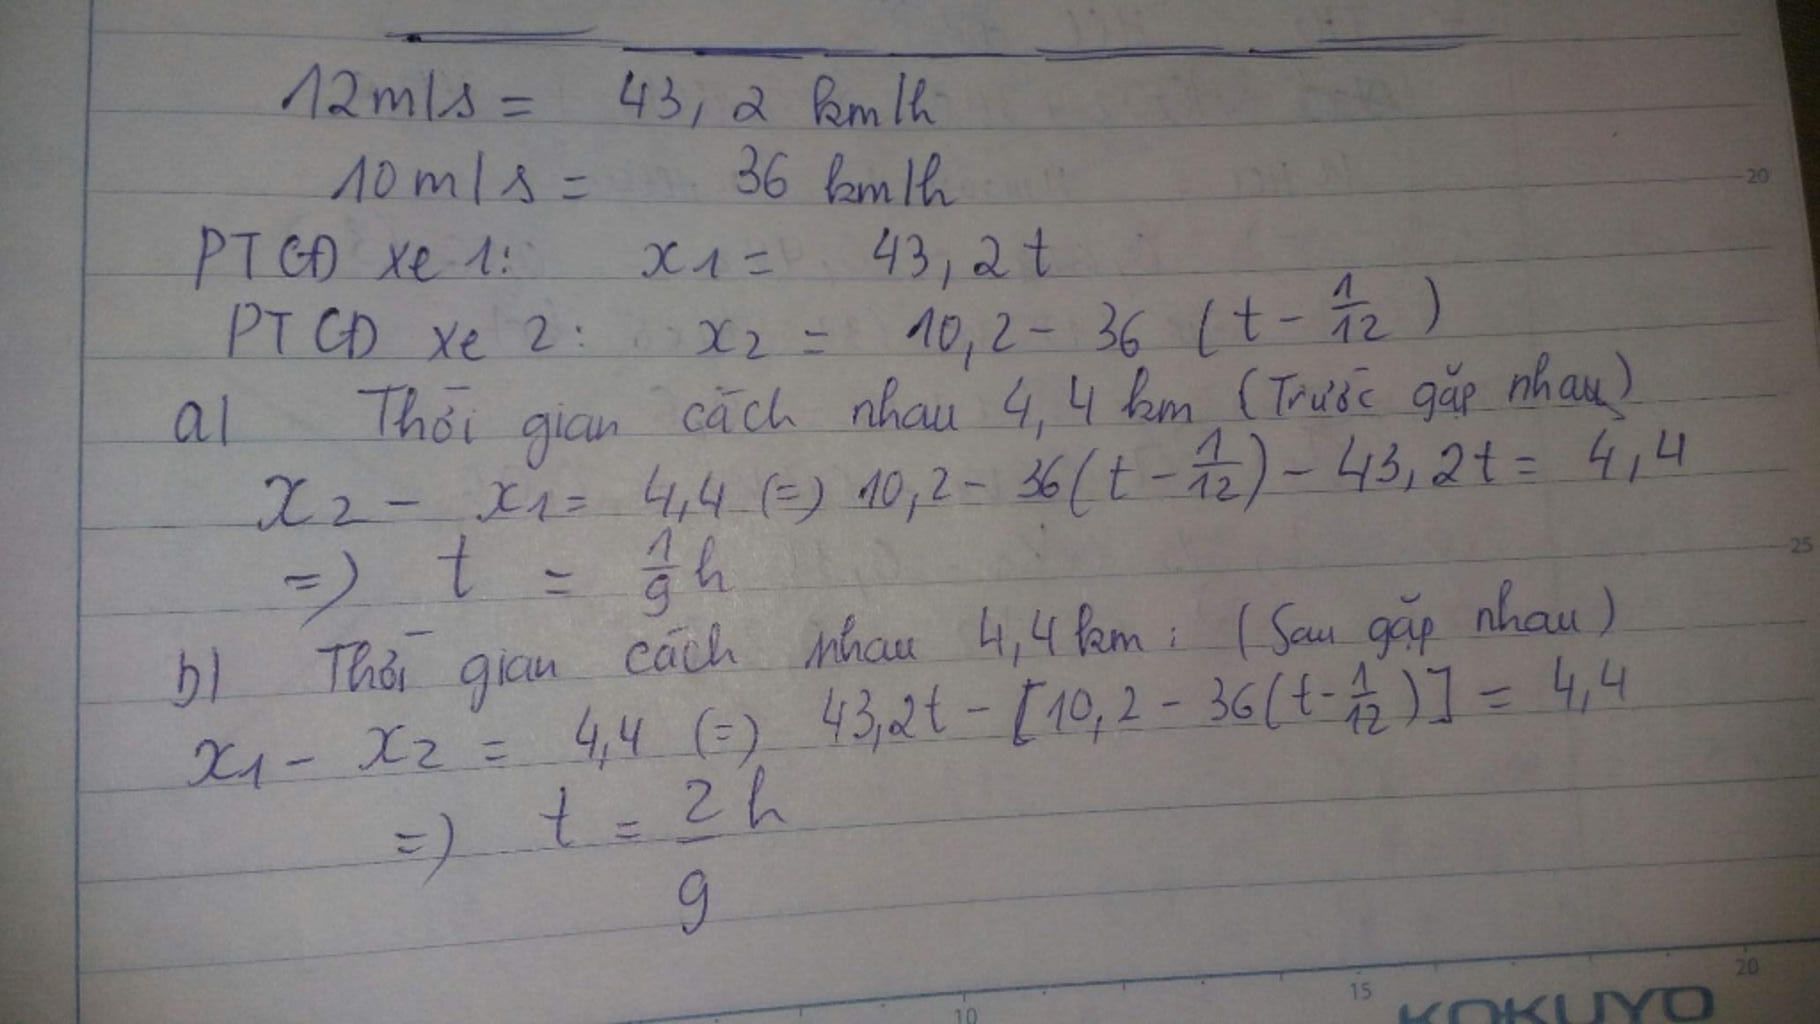 12m/s = 43,2 km/h
10m/s = 36 km/h
PTCĐ xe 1: x1 = 43,2t
PTCĐ xe 2: x2 = 10,2 - 36 (t - 1/12)
a) Thời gian cách nhau 4,4 km (Trước gặp nhau)
x2 - x1 = 4,4 (=) 10,2 - 36(t - 1/12) - 43,2t = 4,4
=) t = 1/9 h
b) Thời gian cách nhau 4,4km: (Sau gặp nhau)
x1 - x2 = 4,4 (=) 43,2t - [10,2 - 36(t - 1/12)] = 4,4
=) t = 2/9 h
20
25
10
15
20
KOKUYO